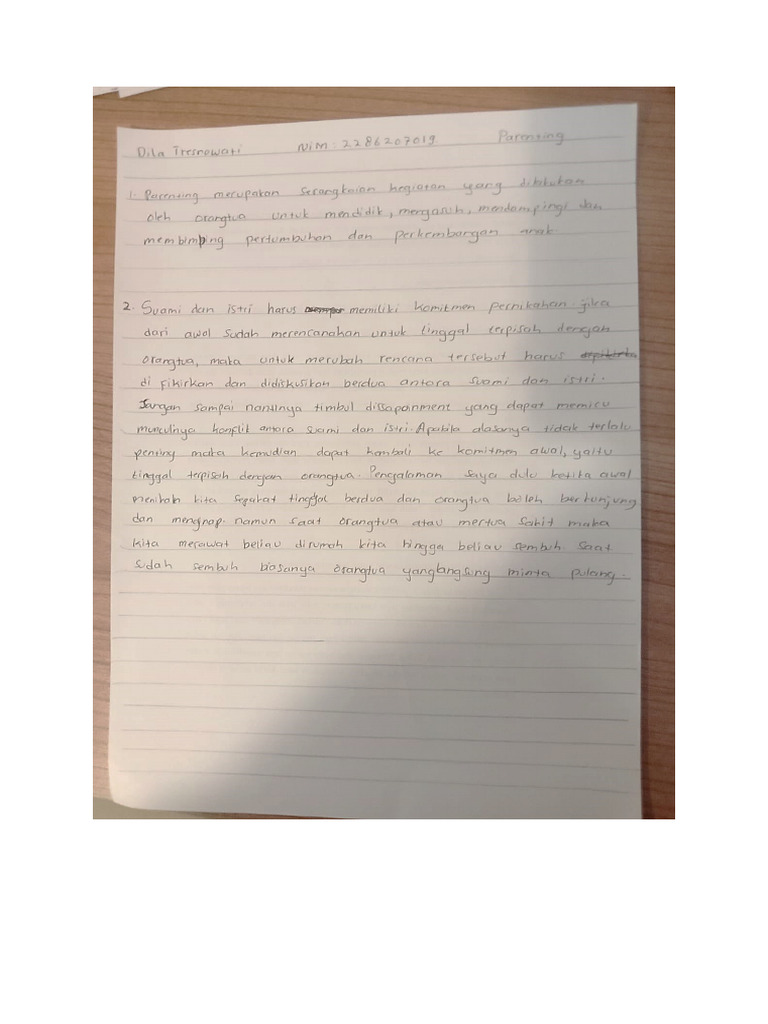 Dila Tresnowati NIM : 2286207019. Parenting
1. Parenting merupakan serangkaian kegiatan yang dilakukan
oleh orangtua untuk mendidik, mengasuh, mendampingi dan
membimbing pertumbuhan dan perkembangan anak.
2. Suami dan istri harus memiliki komitmen pernikahan. jika
dari awal sudah merencanakan untuk tinggal terpisah dengan
orangtua, maka untuk merubah rencana tersebut harus
di fikirkan dan didiskusikan berdua antara suami dan istri.
Jangan sampai nantinya timbul dissapoinment yang dapat memicu
munculnya konflik antara suami dan istri. Apabila alasanya tidak terlalu
penting maka kemudian dapat kembali ke komitmen awal, yaitu
tinggal terpisah dengan orangtua. Pengalaman saya dulu ketika awal
menikah kita sepakat tinggal berdua dan orangtua boleh berkunjung
dan menginap. namun saat orangtua atau mertua sakit maka
kita merawat beliau dirumah kita hingga beliau sembuh. Saat
sudah sembuh biasanya orangtua yang langsung minta pulang.